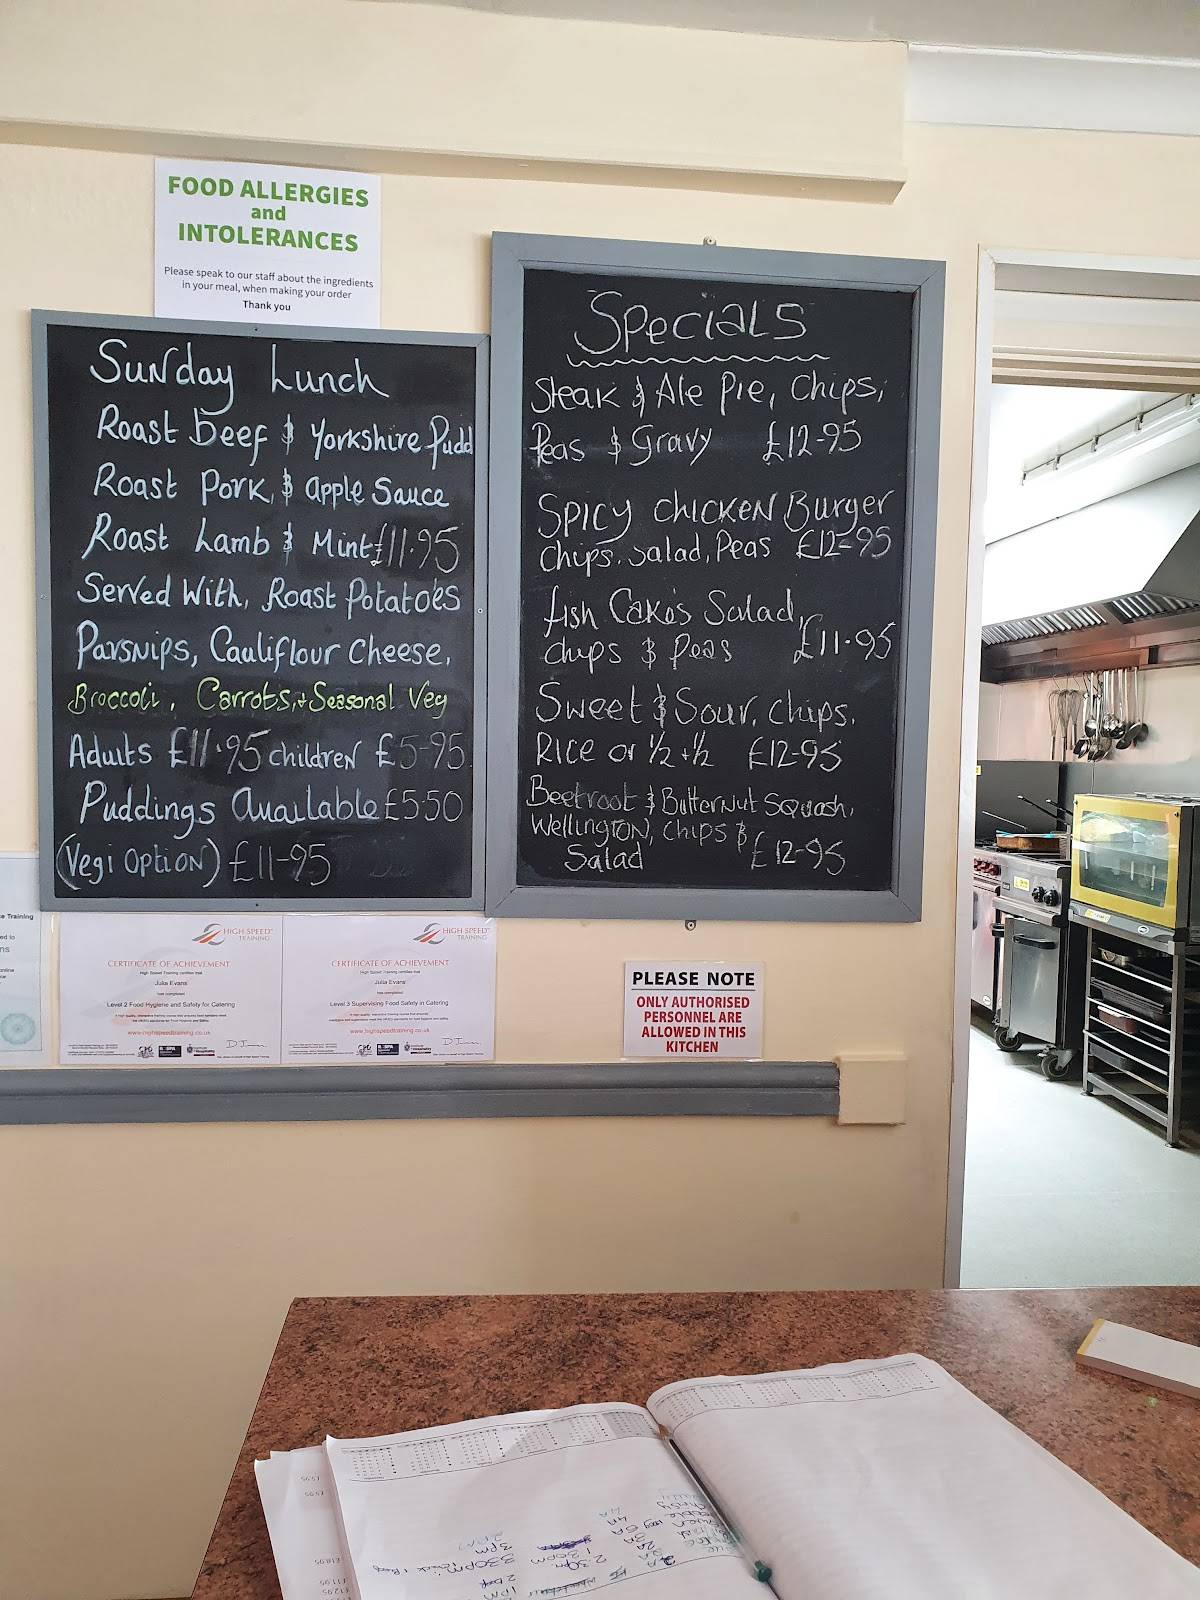 FOOD ALLERGIES
and
INTOLERANCES
Please speak to our staff about the ingredients
in your meal, when making your order
Thank you
Sunday Lunch
Roast beef & Yorkshire Pudd
Roast Pork & apple Sauce
Roast Lamb & Mint £11.95
Served With, Roast Potatoes
Parsnips, Cauliflour Cheese,
Broccoli, Carrots, + Seasonal Veg
Adults £11.95 children £5-95
Puddings Available £5.50
(Vegi OPTION) £11-95
SPecials
Steak & Ale Pie, Chips,
Peas & Gravy £12-95
SPICY CHICKEN Burger
Chips, Salad, Peas £12-95
Fish Cakes Salad,
chips & Peas £11.95
Sweet & Sour, Chips,
RICE or 1/2 + 1/2 £12-95
Beetroot & ButterNut Squash,
Wellington, Chips &
Salad £12-95
HIGH SPEED TRAINING
CERTIFICATE OF ACHIEVEMENT
High Speed Training certifies that
Julia Evans
has completed
Level 2 Food Hygiene and Safety for Catering
www.highspeedtraining.co.uk
HIGH SPEED TRAINING
CERTIFICATE OF ACHIEVEMENT
High Speed Training certifies that
Julia Evans
has completed
Level 3 Supervising Food Safety in Catering
www.highspeedtraining.co.uk
PLEASE NOTE
ONLY AUTHORISED
PERSONNEL ARE
ALLOWED IN THIS
KITCHEN